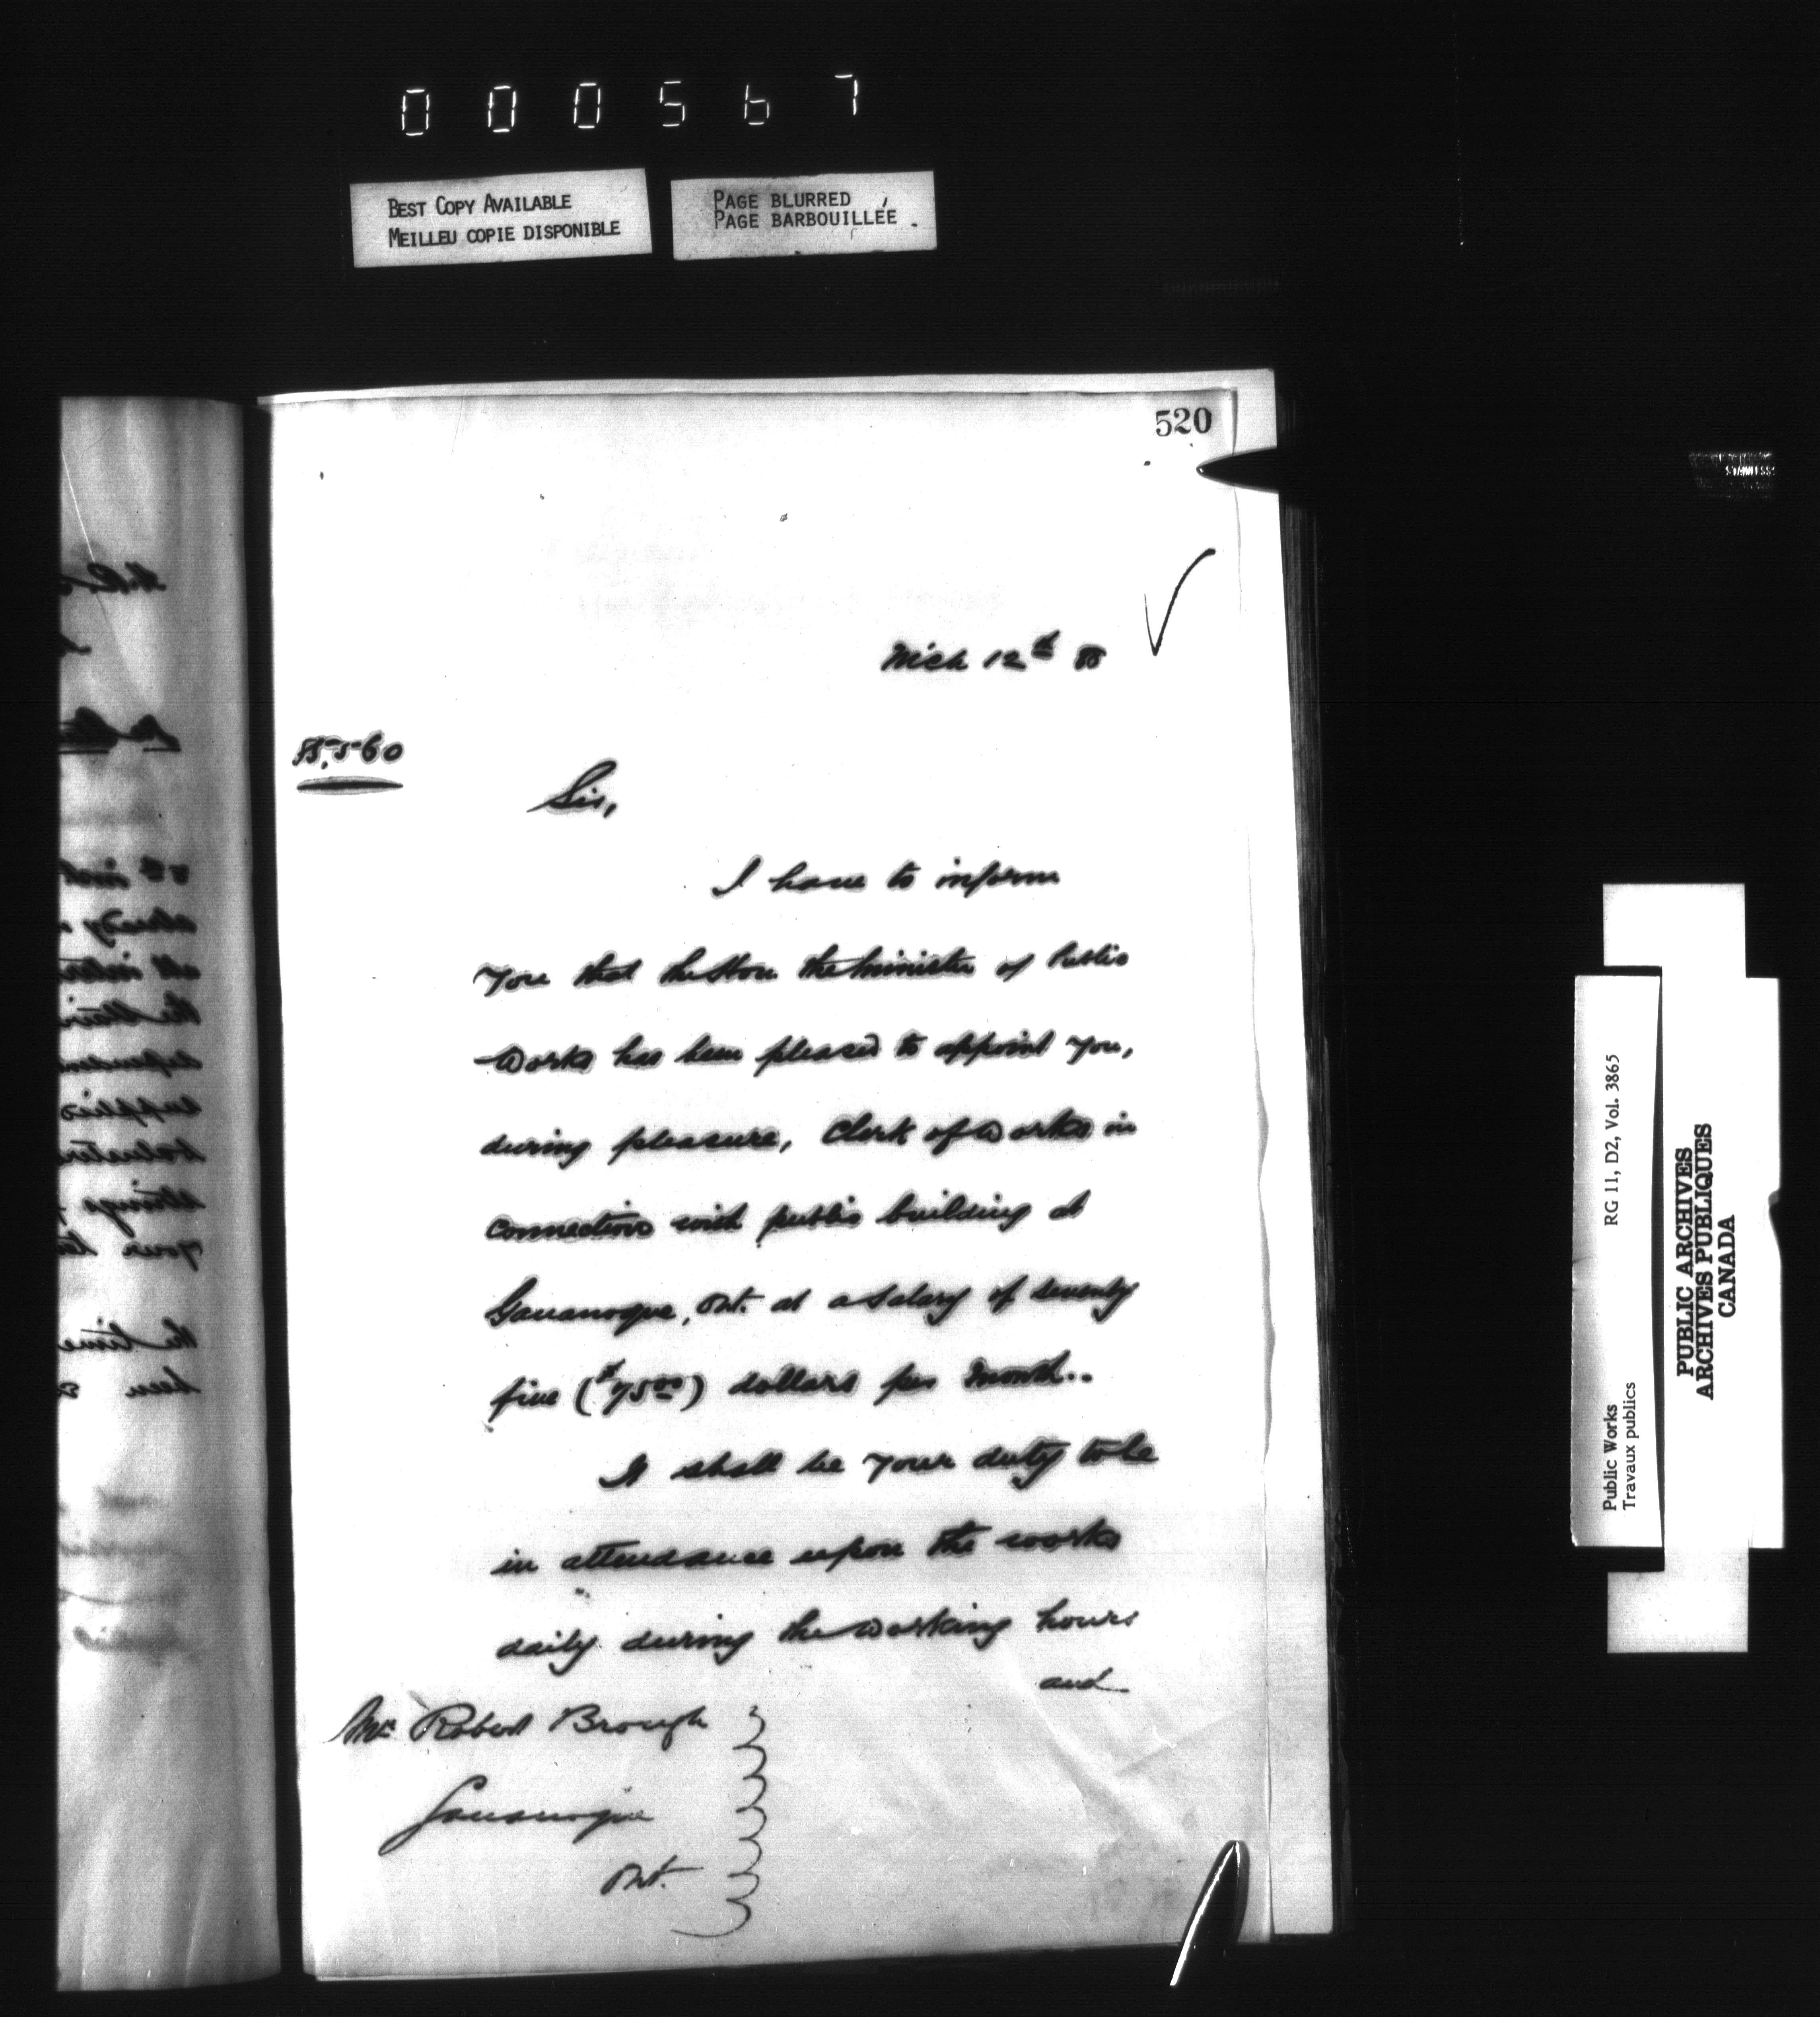 000567
BEST COPY AVAILABLE
MEILLEU COPIE DISPONIBLE
PAGE BLURRED
PAGE BARBOUILLÉE
520
Mch 12th 88
Sir,
I have to inform
you that the Hon the Minister of Public
Works has been pleased to appoint you,
during pleasure, Clerk of Works in
connection with public building at
Gananoque, Ont. at a salary of seventy
five ($75.00) dollars per month..
It shall be your duty to be
in attendance upon the works
daily during the working hours
and
Mr Robert Brough
Gananoque
Ont.
Public Works
Travaux publics
RG 11, D2, Vol. 3865
PUBLIC ARCHIVES
ARCHIVES PUBLIQUES
CANADA